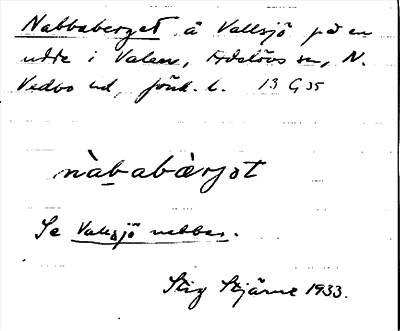 Nabbaberget å Vallsjö på en
udde i Valen, Adelövs sn, N.
Vedbo hd, Jönk. l. 13 G 35
nàb̲abærjət
Se Vallsjö nabben.
Stig Stjärne 1933.